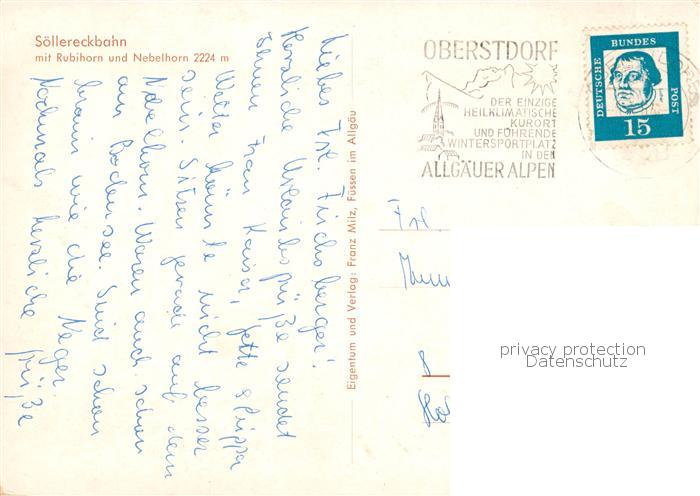 Söllereckbahn
mit Rubihorn und Nebelhorn 2224 m
Liebes Frl. Frischberger!
Herzliche Urlaubsgrüße sendet
Ihnen Frau Kaiser, Jette &
Wetter könnte nicht besser
sein. Sitzen gerade auf dem
Nebelhorn. Waren auch schon
am Bodensee. Sind schon
braun wie die Neger.
Nochmals herzliche
Grüße
Eigentum und Verlag: Franz Milz, Füssen im Allgäu
OBERSTDORF
DER EINZIGE
HEILKLIMATISCHE
KURORT
UND FÜHRENDE
WINTERSPORTPLATZ
IN DEN
ALLGÄUER ALPEN
DEUTSCHE
BUNDES
POST
15
Frl.
8
privacy protection
Datenschutz